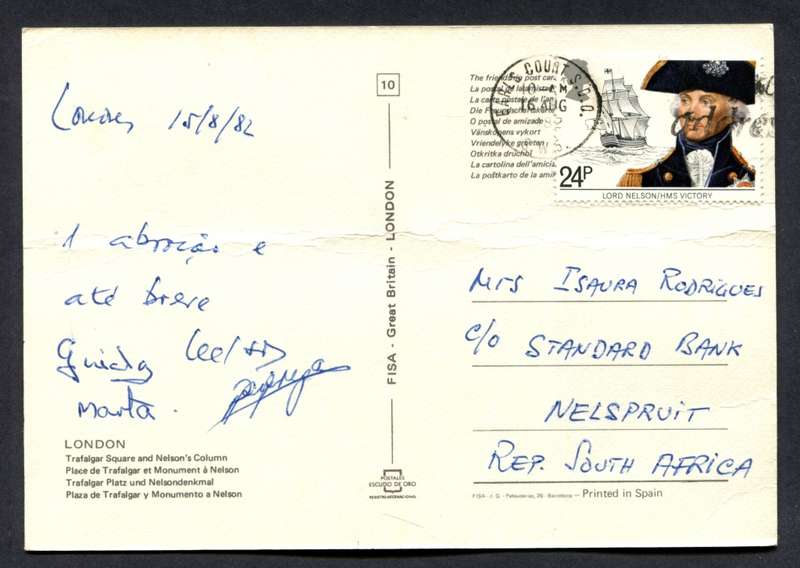 Londres 15/8/82
1 abração e
até breve
Guida
Marta.
LONDON
Trafalgar Square and Nelson's Column
Place de Trafalgar et Monument à Nelson
Trafalgar Platz und Nelsondenkmal
Plaza de Trafalgar y Monumento a Nelson
10
FISA - Great Britain - LONDON
POSTALES
ESCUDO DE ORO
REGISTRO INTERNACIONAL
The friendship post car
La postal de la amistad
La carte postale de l'am
Die Freundschaftskarte
O postal de amizade
Vänskapens vykort
Vriendelyke groeten
Otkritka druchbi
La cartolina dell'amiciz
La poŝtkarto de la amik
EARLS COURT S.D.O.
10-AM
16 AUG
24P
LORD NELSON/HMS VICTORY
Mrs Isaura Rodrigues
c/o STANDARD BANK
NELSPRUIT
REP. SOUTH AFRICA
FISA - J. G. - Palaudarias, 26 - Barcelona - Printed in Spain